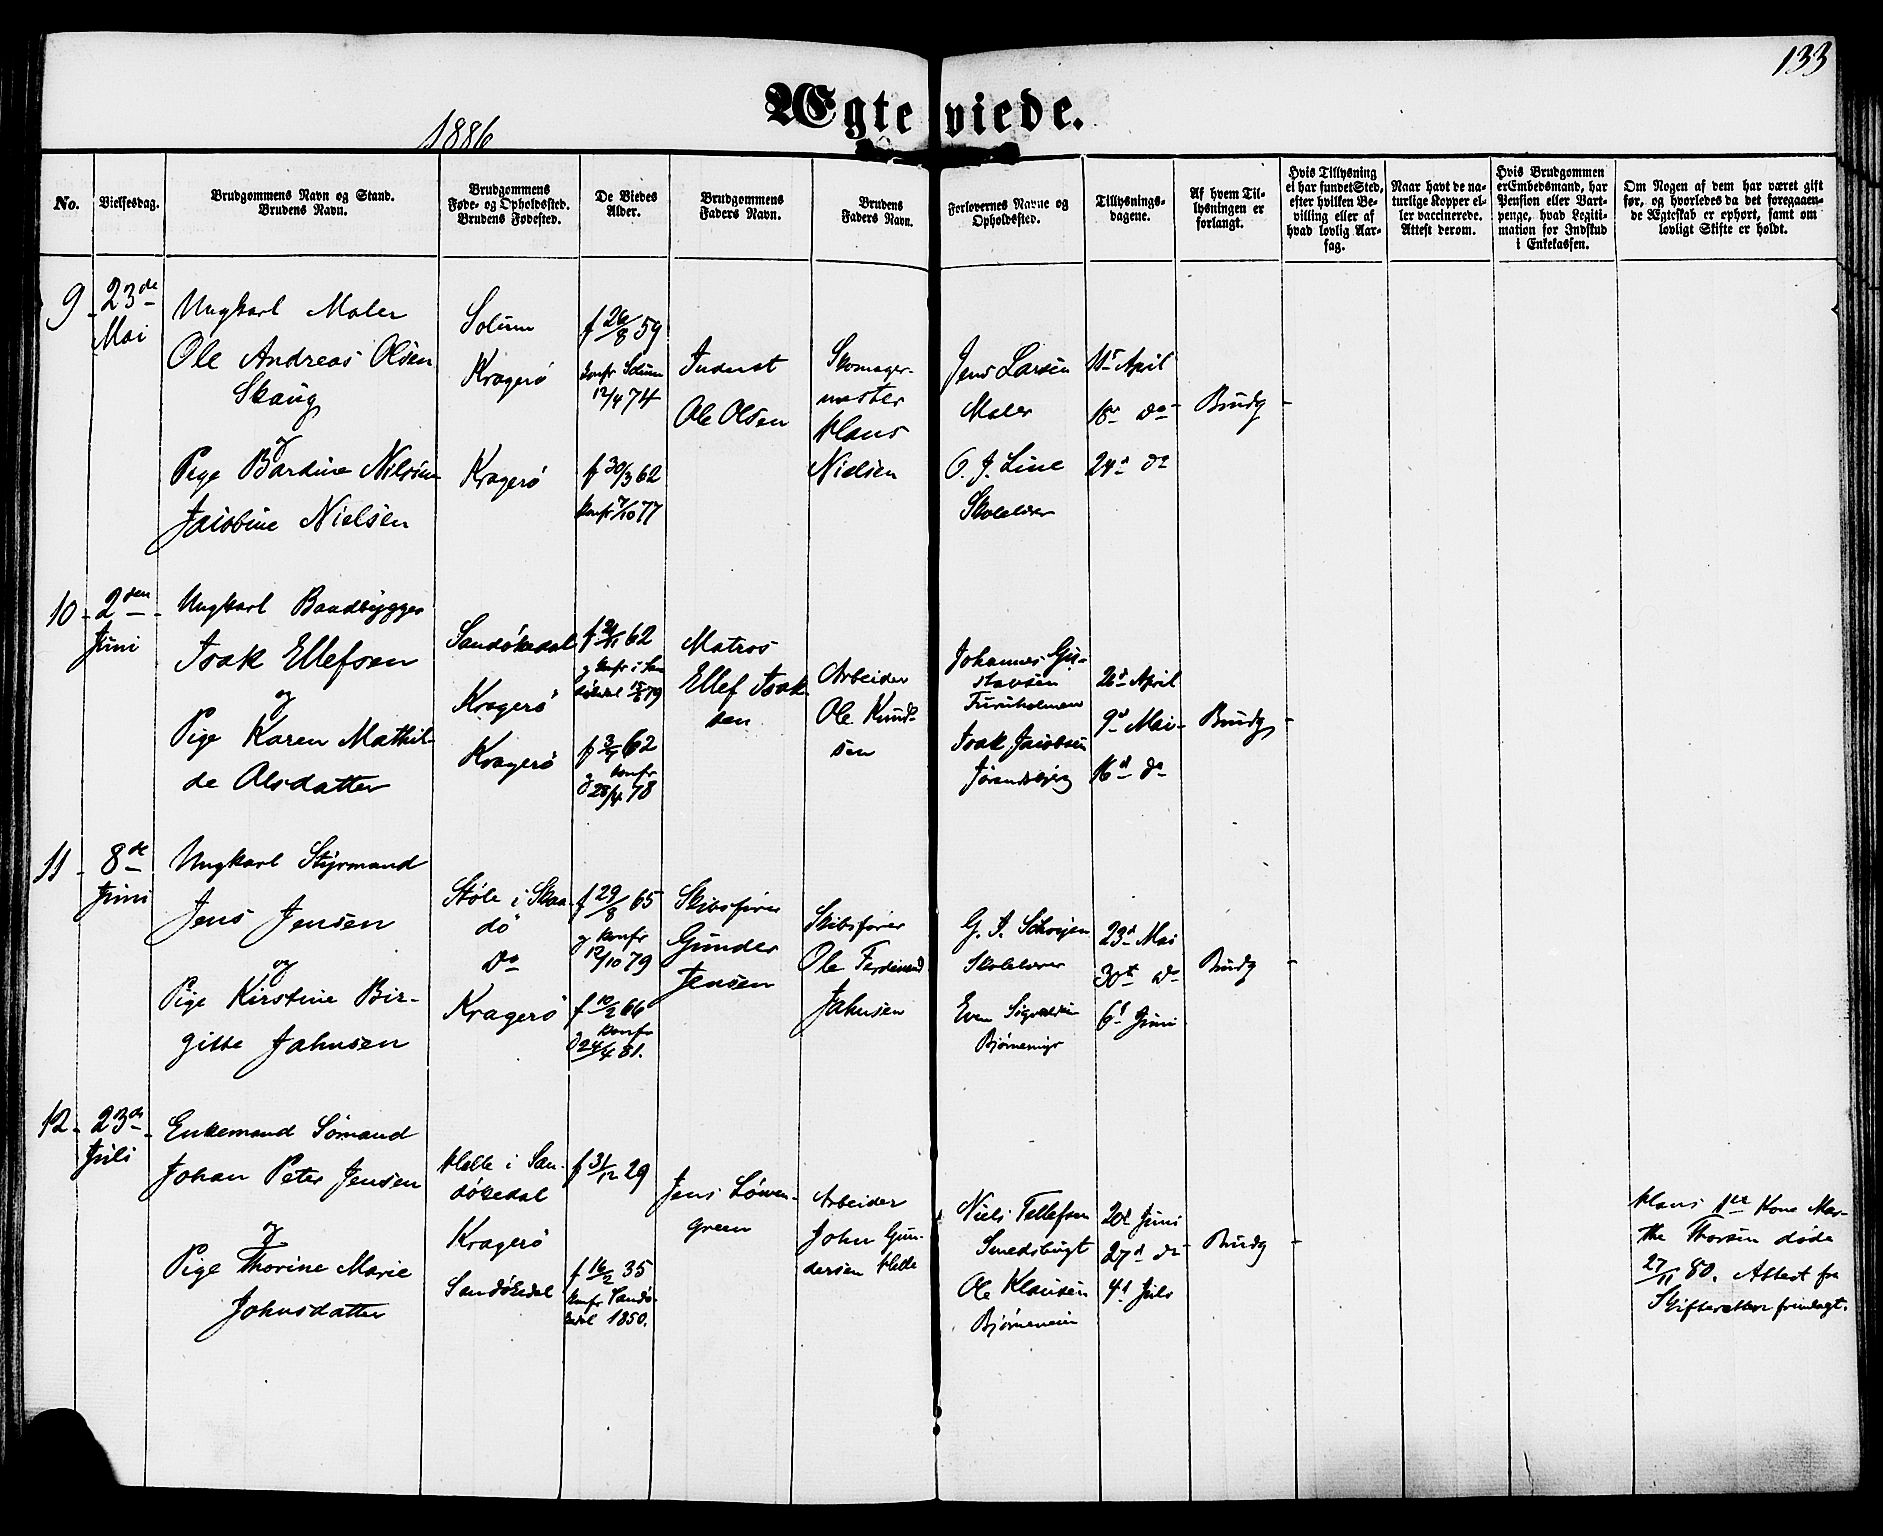 133
1886
Ægteviede.
No.
Vielsesdag.
Brudgommens Navn og Stand.
Brudens Navn.
Brudgommens
Føde- og Opholdssted.
Brudens Fødested.
De Viedes
Alder.
Brudgommens
Faders Navn.
Brudens
Faders Navn.
Forlovernes Navne og
Opholdssted.
Tillysnings-
dagene.
Af hvem Til-
lysningen er
forlangt.
Hvis Tillysning
ei har fundet Sted,
efter hvilken Be-
villing eller af
hvad lovlig Aar-
sag.
Naar havt de na-
turlige Kopper el-
ler vaccinerede.
Attest derom.
Hvis Brudgommen
er Embedsmand, har
Pension eller Vart-
penge, hvad Legiti-
mation for Indskud
i Enkekassen.
Om Nogen af dem har været gift
før, og hvorledes da det foregaaen-
de Ægteskab er ophørt, samt om
lovligt Skifte er holdt.
9
23de
Mai
Ungkarl Maler
Ole Andreas Olsen
Skaug
og
Pige Bardine Nilsine
Jacobine Nielsen
Solum
Kragerø
Kragerø
f 26/8 59
konfr Solum
12/4 74
f 30/3 62
konfr 7/10 77
Inderst
Ole Olsen
Skomager-
mester
Hans
Nielsen
Jens Larsen
Maler
O. J. Line
Skolelærer
11t April
18de do
24d do
Brudg
10
2den
Juni
Ungkarl Baadbygger
Isak Ellefsen
og
Pige Karen Mathil-
de Olsdatter
Sandøkedal
Kragerø
Kragerø
62
og konfr i San
døkedal 79
62
og konfr
28/4 78
Matros
Ellef Isak
sen
Arbeider
Ole Knud-
sen
Johannes Gu-
stavsen
Furuholmen
Isak Jacobsen
26d April
9d Mai
16d do
Brudg
11
8de
Juni
Ungkarl Styrmand
Jens Jensen
og
Pige Kirstine Bir-
gitte Jahnsen
Støle i Skaa-
dø
Do
Kragerø
f 29/8 65
og konfr
12/10 79
f 10/2 66
og konfr
24/4 81.
Skibsfører
Gunder
Jensen
Skibsfører
Ole Ferdinand
Jahnsen
Skolelærer
Even
23d Mai
30t do
6t Juni
Brudg
12
23de
Juli
Enkemand Sømand
Johan Peter Jensen
og
Pige Thorine Marie
Johnsdatter
Helle i San-
døkedal
Kragerø
Sandøkedal
f 31/12 29
f 16/2 35
konfr Sandø-
kedal 1850.
Jens Løwen-
green
Arbeider
John Gun-
dersen Helle
Niels Tellefsen
Smedsbugt
Ole Klausen
Bjørneveien
20d Juni
27d do
4d Juli
Brudg
Hans 1ste Kone Mar-
the Thorsen døde
27/11 80. Attest fra
Skifteretten fremlagt.